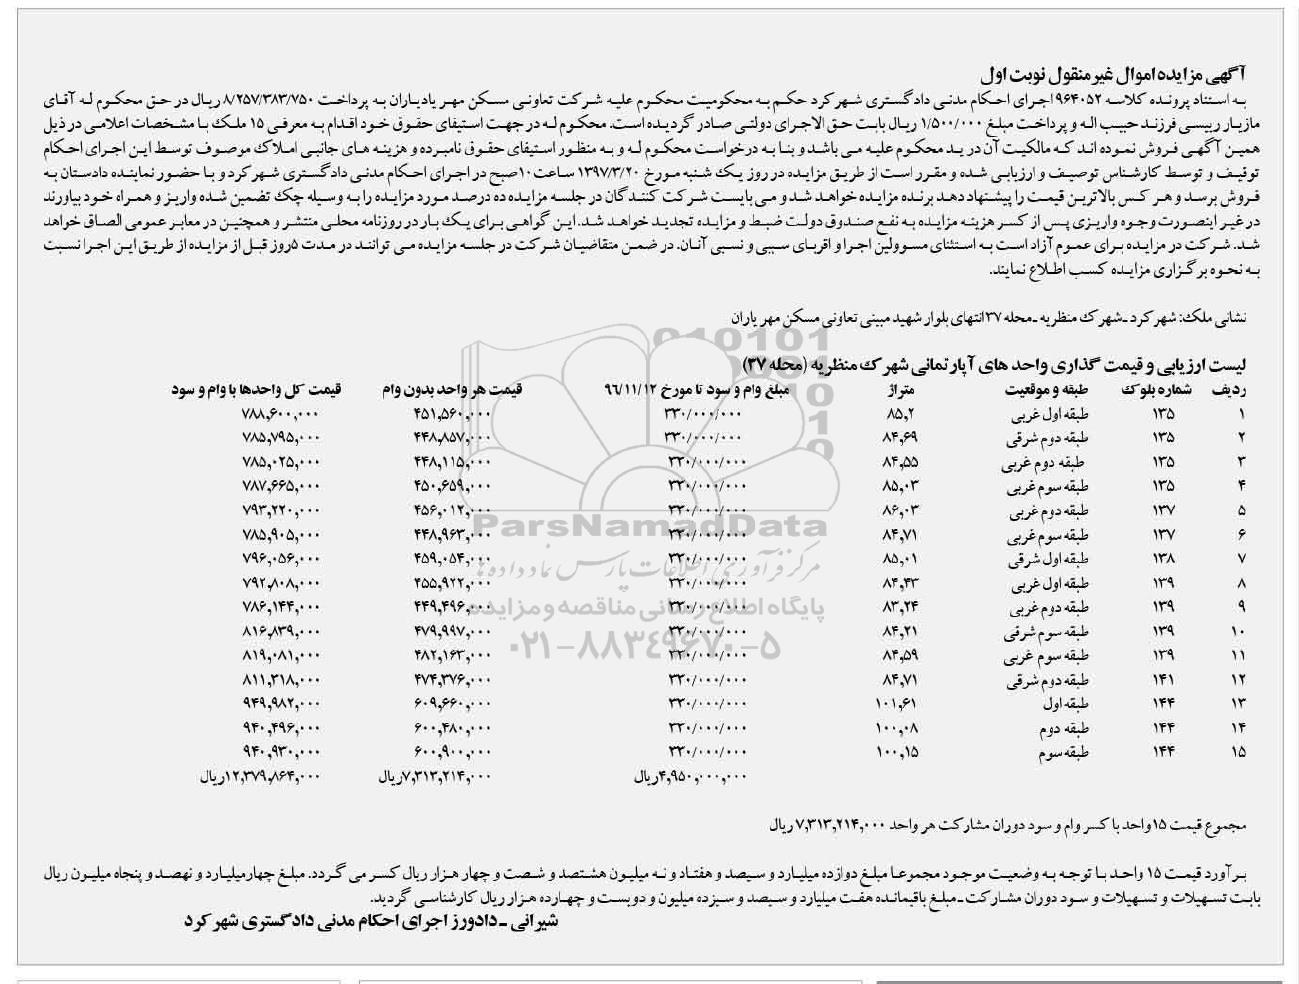 آگهی مزایده اموال غیر منقول نوبت اول
به استناد پرونده کلاسه ۹۶۴۰۵۲ اجرای احکام مدنی دادگستری شهرکرد حکم به محکومیت محکوم علیه شرکت تعاونی مسکن مهر یادیاران به پرداخت ۸/۲۵۷/۳۸۳/۷۵۰ ریال در حق محکوم له آقای
مازیار رییسی فرزند حبیب اله و پرداخت مبلغ ۱/۵۰۰/۰۰۰ ریال بابت حق الاجرای دولتی صادر گردیده است. محکوم له در جهت استیفای حقوق خود اقدام به معرفی ۱۵ ملک با مشخصات اعلامی در ذیل
همین آگهی فروش نموده اند که مالکیت آن در ید محکوم علیه می باشد و بنا به درخواست محکوم له و به منظور استیفای حقوق نامبرده و هزینه های جانبی املاک موصوف توسط این اجرای احکام
توقیف و توسط کارشناس توصیف و ارزیابی شده و مقرر است از طریق مزایده در روز یک شنبه مورخ ۱۳۹۷/۳/۲۰ ساعت ۱۰صبح در اجرای احکام مدنی دادگستری شهرکرد و با حضور نماینده دادستان به
فروش برسد و هر کس بالاترین قیمت را پیشنهاد دهد برنده مزایده خواهد شد و می بایست شرکت کنندگان در جلسه مزایده ده درصد مورد مزایده را به وسیله چک تضمین شده واریز و همراه خود بیاورند
در غیر اینصورت وجوه واریزی پس از کسر هزینه مزایده به نفع صندوق دولت ضبط و مزایده تجدید خواهد شد. این گواهی برای یک بار در روزنامه محلی منتشر و همچنین در معابر عمومی الصاق خواهد
شد. شرکت در مزایده برای عموم آزاد است به استثنای مسوولین اجرا و اقربای سببی و نسبی آنان. در ضمن متقاضیان شرکت در جلسه مزایده می توانند در مدت ۵روز قبل از مزایده از طریق این اجرا نسبت
به نحوه برگزاری مزایده کسب اطلاع نمایند.
نشانی ملک: شهرکرد ـ شهرک منظریه ـ محله ۳۷ انتهای بلوار شهید مبینی تعاونی مسکن مهر یاران
لیست ارزیابی و قیمت گذاری واحد های آپارتمانی شهرک منظریه (محله ۳۷)
ردیف شماره بلوک طبقه و موقعیت متراژ مبلغ وام و سود تا مورخ ۹۶/۱۱/۱۲ قیمت هر واحد بدون وام قیمت کل واحدها با وام و سود
۱ ۱۳۵ طبقه اول غربی ۸۵,۲ ۳۳۰/۰۰۰/۰۰۰ ۴۵۱,۵۶۰,۰۰۰ ۷۸۸,۶۰۰,۰۰۰
۲ ۱۳۵ طبقه دوم شرقی ۸۴,۶۹ ۳۳۰/۰۰۰/۰۰۰ ۴۴۸,۸۵۷,۰۰۰ ۷۸۵,۷۹۵,۰۰۰
۳ ۱۳۵ طبقه دوم غربی ۸۴,۵۵ ۳۳۰/۰۰۰/۰۰۰ ۴۴۸,۱۱۵,۰۰۰ ۷۸۵,۰۲۵,۰۰۰
۴ ۱۳۵ طبقه سوم غربی ۸۵,۰۳ ۳۳۰/۰۰۰/۰۰۰ ۴۵۰,۶۵۹,۰۰۰ ۷۸۷,۶۶۵,۰۰۰
۵ ۱۳۷ طبقه دوم غربی ۸۶,۰۳ ۳۳۰/۰۰۰/۰۰۰ ۴۵۶,۰۱۲,۰۰۰ ۷۹۳,۲۲۰,۰۰۰
۶ ۱۳۷ طبقه سوم غربی ۸۴,۷۱ ۳۳۰/۰۰۰/۰۰۰ ۴۴۸,۹۶۳,۰۰۰ ۷۸۵,۹۰۵,۰۰۰
۷ ۱۳۸ طبقه اول شرقی ۸۵,۰۱ ۳۳۰/۰۰۰/۰۰۰ ۴۵۹,۰۵۴,۰۰۰ ۷۹۶,۰۵۶,۰۰۰
۸ ۱۳۹ طبقه اول غربی ۸۴,۴۳ ۳۳۰/۰۰۰/۰۰۰ ۴۵۵,۹۲۲,۰۰۰ ۷۹۲,۸۰۸,۰۰۰
۹ ۱۳۹ طبقه دوم غربی ۸۳,۲۴ ۳۳۰/۰۰۰/۰۰۰ ۴۴۹,۴۹۶,۰۰۰ ۷۸۶,۱۴۴,۰۰۰
۱۰ ۱۳۹ طبقه سوم شرقی ۸۴,۲۱ ۳۳۰/۰۰۰/۰۰۰ ۴۷۹,۹۹۷,۰۰۰ ۸۱۶,۸۳۹,۰۰۰
۱۱ ۱۳۹ طبقه سوم غربی ۸۴,۵۹ ۳۳۰/۰۰۰/۰۰۰ ۴۸۲,۱۶۳,۰۰۰ ۸۱۹,۰۸۱,۰۰۰
۱۲ ۱۴۱ طبقه دوم شرقی ۸۴,۷۱ ۳۳۰/۰۰۰/۰۰۰ ۴۷۴,۳۷۶,۰۰۰ ۸۱۱,۳۱۸,۰۰۰
۱۳ ۱۴۴ طبقه اول ۱۰۱,۶۱ ۳۳۰/۰۰۰/۰۰۰ ۶۰۹,۶۶۰,۰۰۰ ۹۴۹,۹۸۲,۰۰۰
۱۴ ۱۴۴ طبقه دوم ۱۰۰,۰۸ ۳۳۰/۰۰۰/۰۰۰ ۶۰۰,۴۸۰,۰۰۰ ۹۴۰,۴۹۶,۰۰۰
۱۵ ۱۴۴ طبقه سوم ۱۰۰,۱۵ ۳۳۰/۰۰۰/۰۰۰ ۶۰۰,۹۰۰,۰۰۰ ۹۴۰,۹۳۰,۰۰۰
۴,۹۵۰,۰۰۰,۰۰۰ریال ۷,۳۱۳,۲۱۴,۰۰۰ریال ۱۲,۳۷۹,۸۶۴,۰۰۰ریال
مجموع قیمت ۱۵واحد با کسر وام و سود دوران مشارکت هر واحد ۷,۳۱۳,۲۱۴,۰۰۰ ریال
برآورد قیمت ۱۵ واحد با توجه به وضعیت موجود مجموعا مبلغ دوازده میلیارد و سیصد و هفتاد و نه میلیون هشتصد و شصت و چهار هزار ریال کسر می گردد. مبلغ چهارمیلیارد و نهصد و پنجاه میلیون ریال
بابت تسهیلات و تسهیلات و سود دوران مشارکت ـ مبلغ باقیمانده هفت میلیارد و سیصد و سیزده میلیون و دویست و چهارده هزار ریال کارشناسی گردید.
شیرانی ـ دادورز اجرای احکام مدنی دادگستری شهرکرد
ParsNamadData
مرکز فرآوری اطلاعات پارس نماد داده ها
پایگاه اطلاع رسانی مناقصه و مزایده
۰۲۱-۸۸۳۴۹۶۷۰-۵